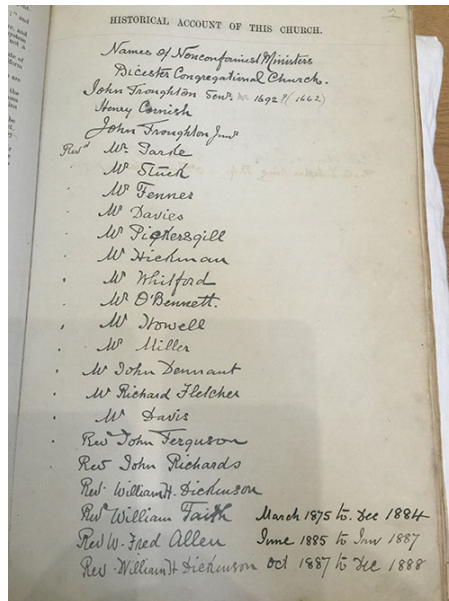 HISTORICAL ACCOUNT OF THIS CHURCH.
2
Names of Nonconformist Ministers
Bicester Congregational Church.
John Troughton Senr 1692? (1662)
Henry Cornish
John Troughton Junr
Revd Mr Parke
Mr Stuck
Mr Fenner
Mr Davies
Mr Pickersgill
Mr Hickman
Mr Whitford
Mr O'Bennett.
Mr Howell
Mr Miller
Mr John Dennant
Mr Richard Fletcher
Mr Davis
Rev John Ferguson
Rev John Richards
Rev. William H. Dickinson
Revd William Faith March 1875 to. Dec 1884
Rev W. Fred Allen June 1885 to Jun 1887
Rev. William H Dickinson Oct 1887 to Dec 1888